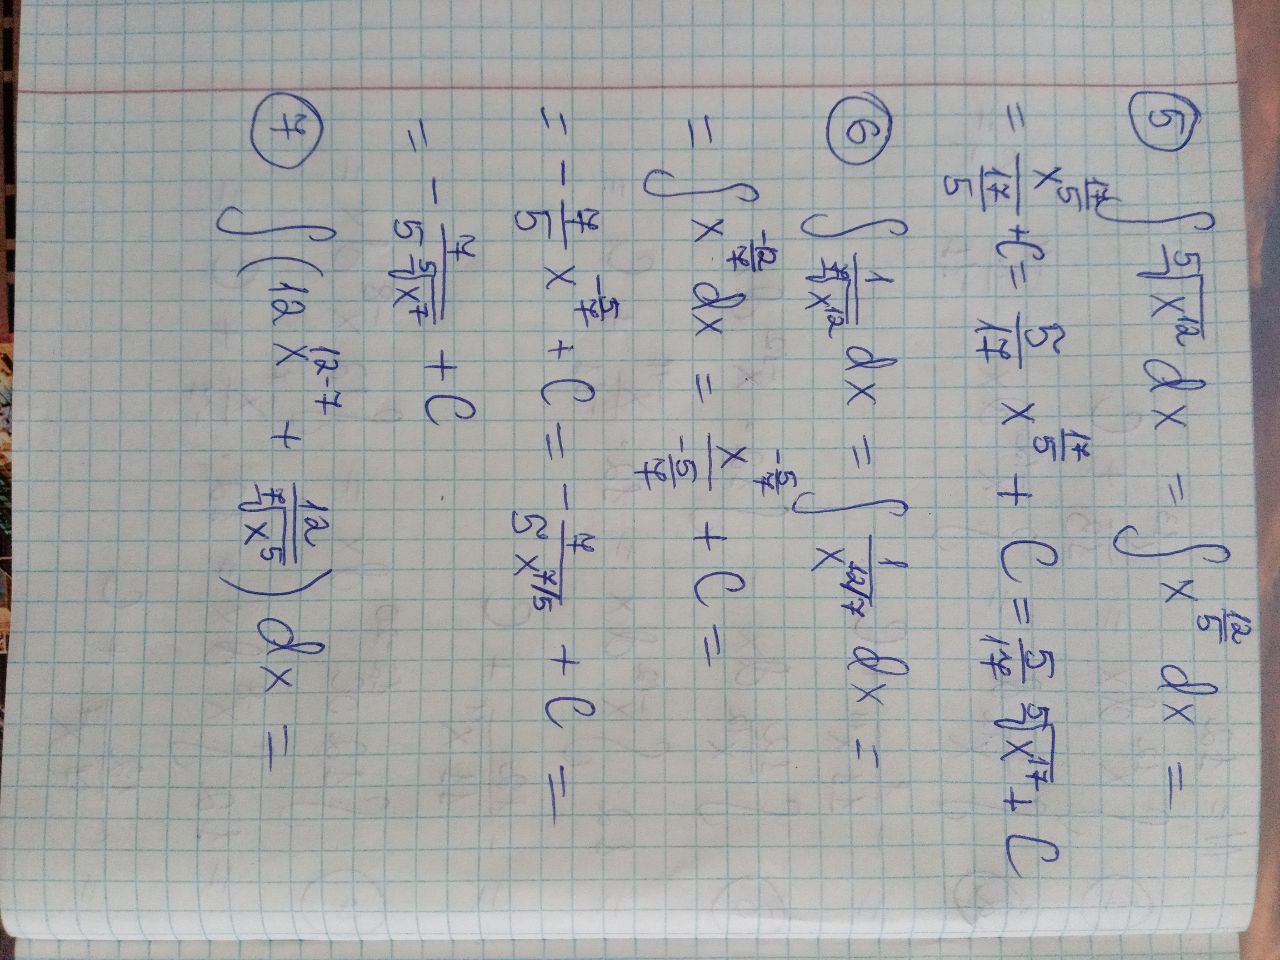 ⑤ ∫ ⁵√(x¹²) dx = ∫ x^(12/5) dx =
= x^(17/5) / (17/5) + C = 5/17 x^(17/5) + C = 5/17 ⁵√(x¹⁷) + C
⑥ ∫ 1/⁷√(x¹²) dx = ∫ 1/x^(12/7) dx =
= ∫ x^(-12/7) dx = x^(-5/7) / (-5/7) + C =
= - 7/5 x^(-5/7) + C = - 7/(5 x^(7/5)) + C =
= - 7/(5 ⁵√(x⁷)) + C
⑦ ∫ (12 x^(12-7) + 12/⁷√(x⁵)) dx =